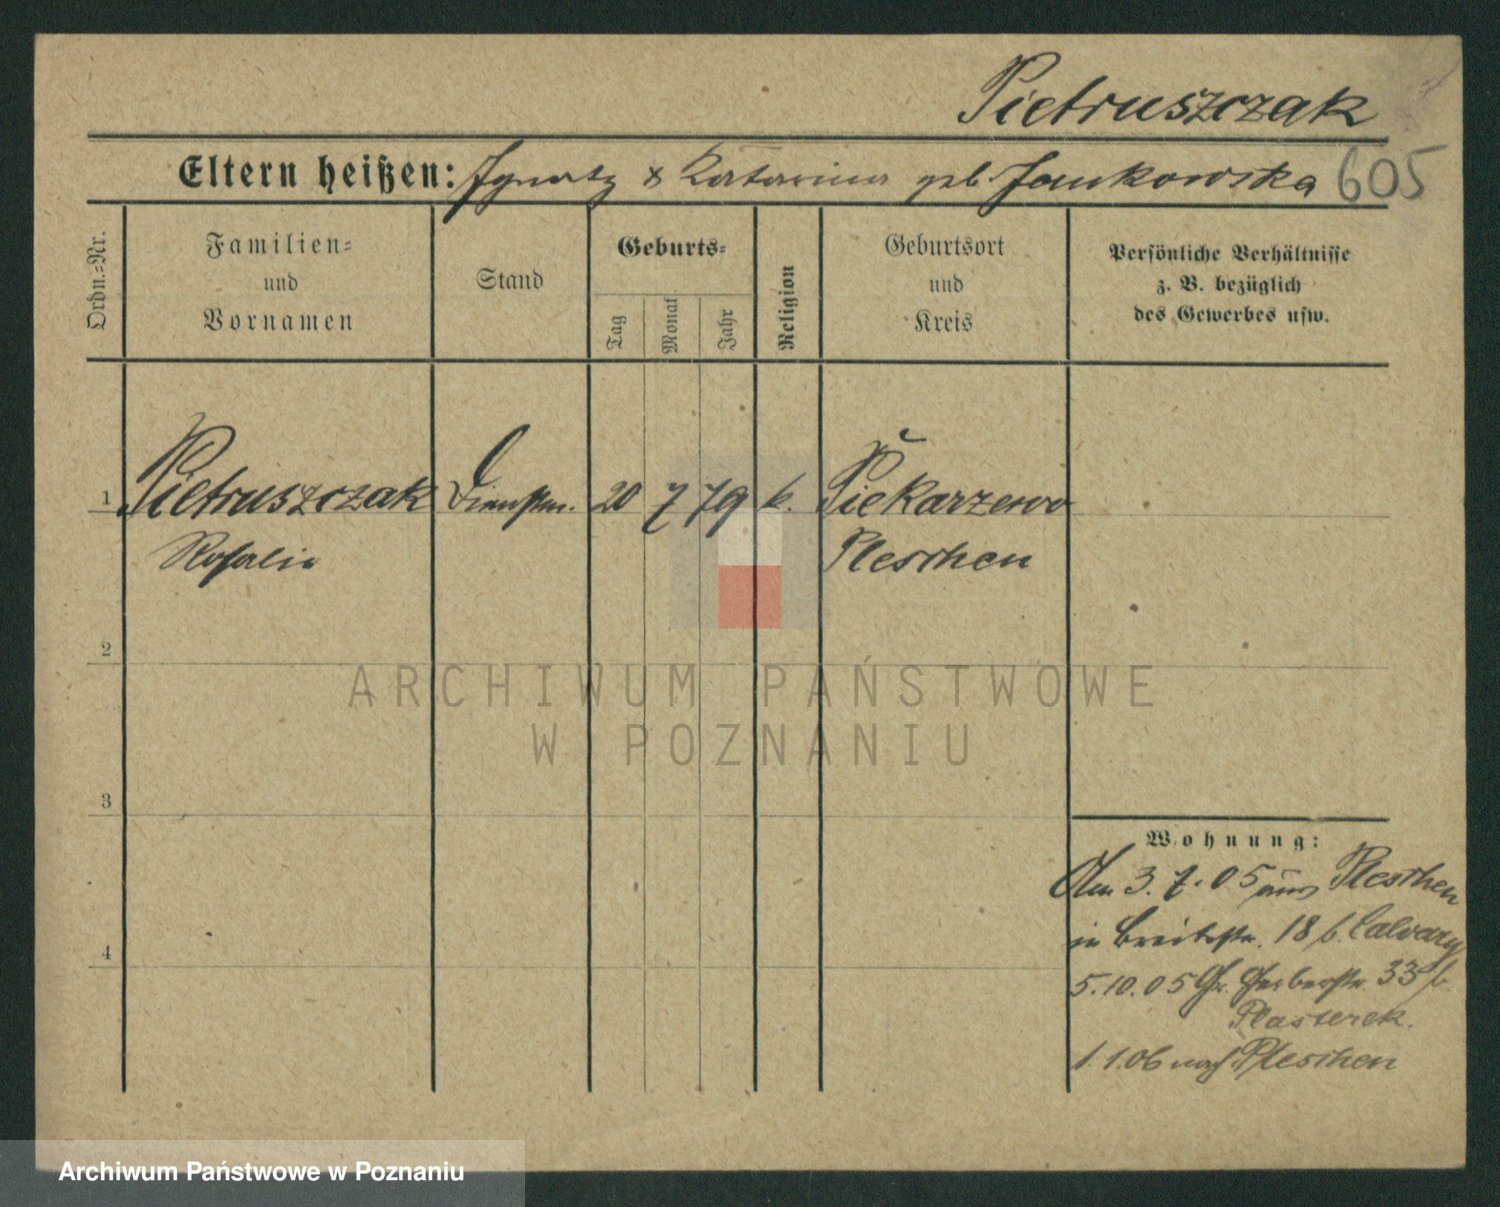 Pietruszczak
Eltern heißen: Ignatz & Katarina geb. Jankowska 605
Ordn.=Nr.
Familien=
und
Vornamen
Stand
Geburts=
Tag
Monat
Jahr
Religion
Geburtsort
und
Kreis
Persönliche Verhältnisse
z. B. bezüglich
des Gewerbes usw.
1 Pietruszczak Dienstm. 20 7 79 k. Piekarzewo
Rosalie Pleschen
2
ARCHIWUM PAŃSTWOWE
W POZNANIU
3
Wohnung:
Am 3. 7. 05 aus Pleschen
in Breitestr. 18 b. Calvary
4
5.10.05 Gr. Gerberstr. 33 b.
Plasterek.
1. 1. 06 nach Pleschen
Archiwum Państwowe w Poznaniu